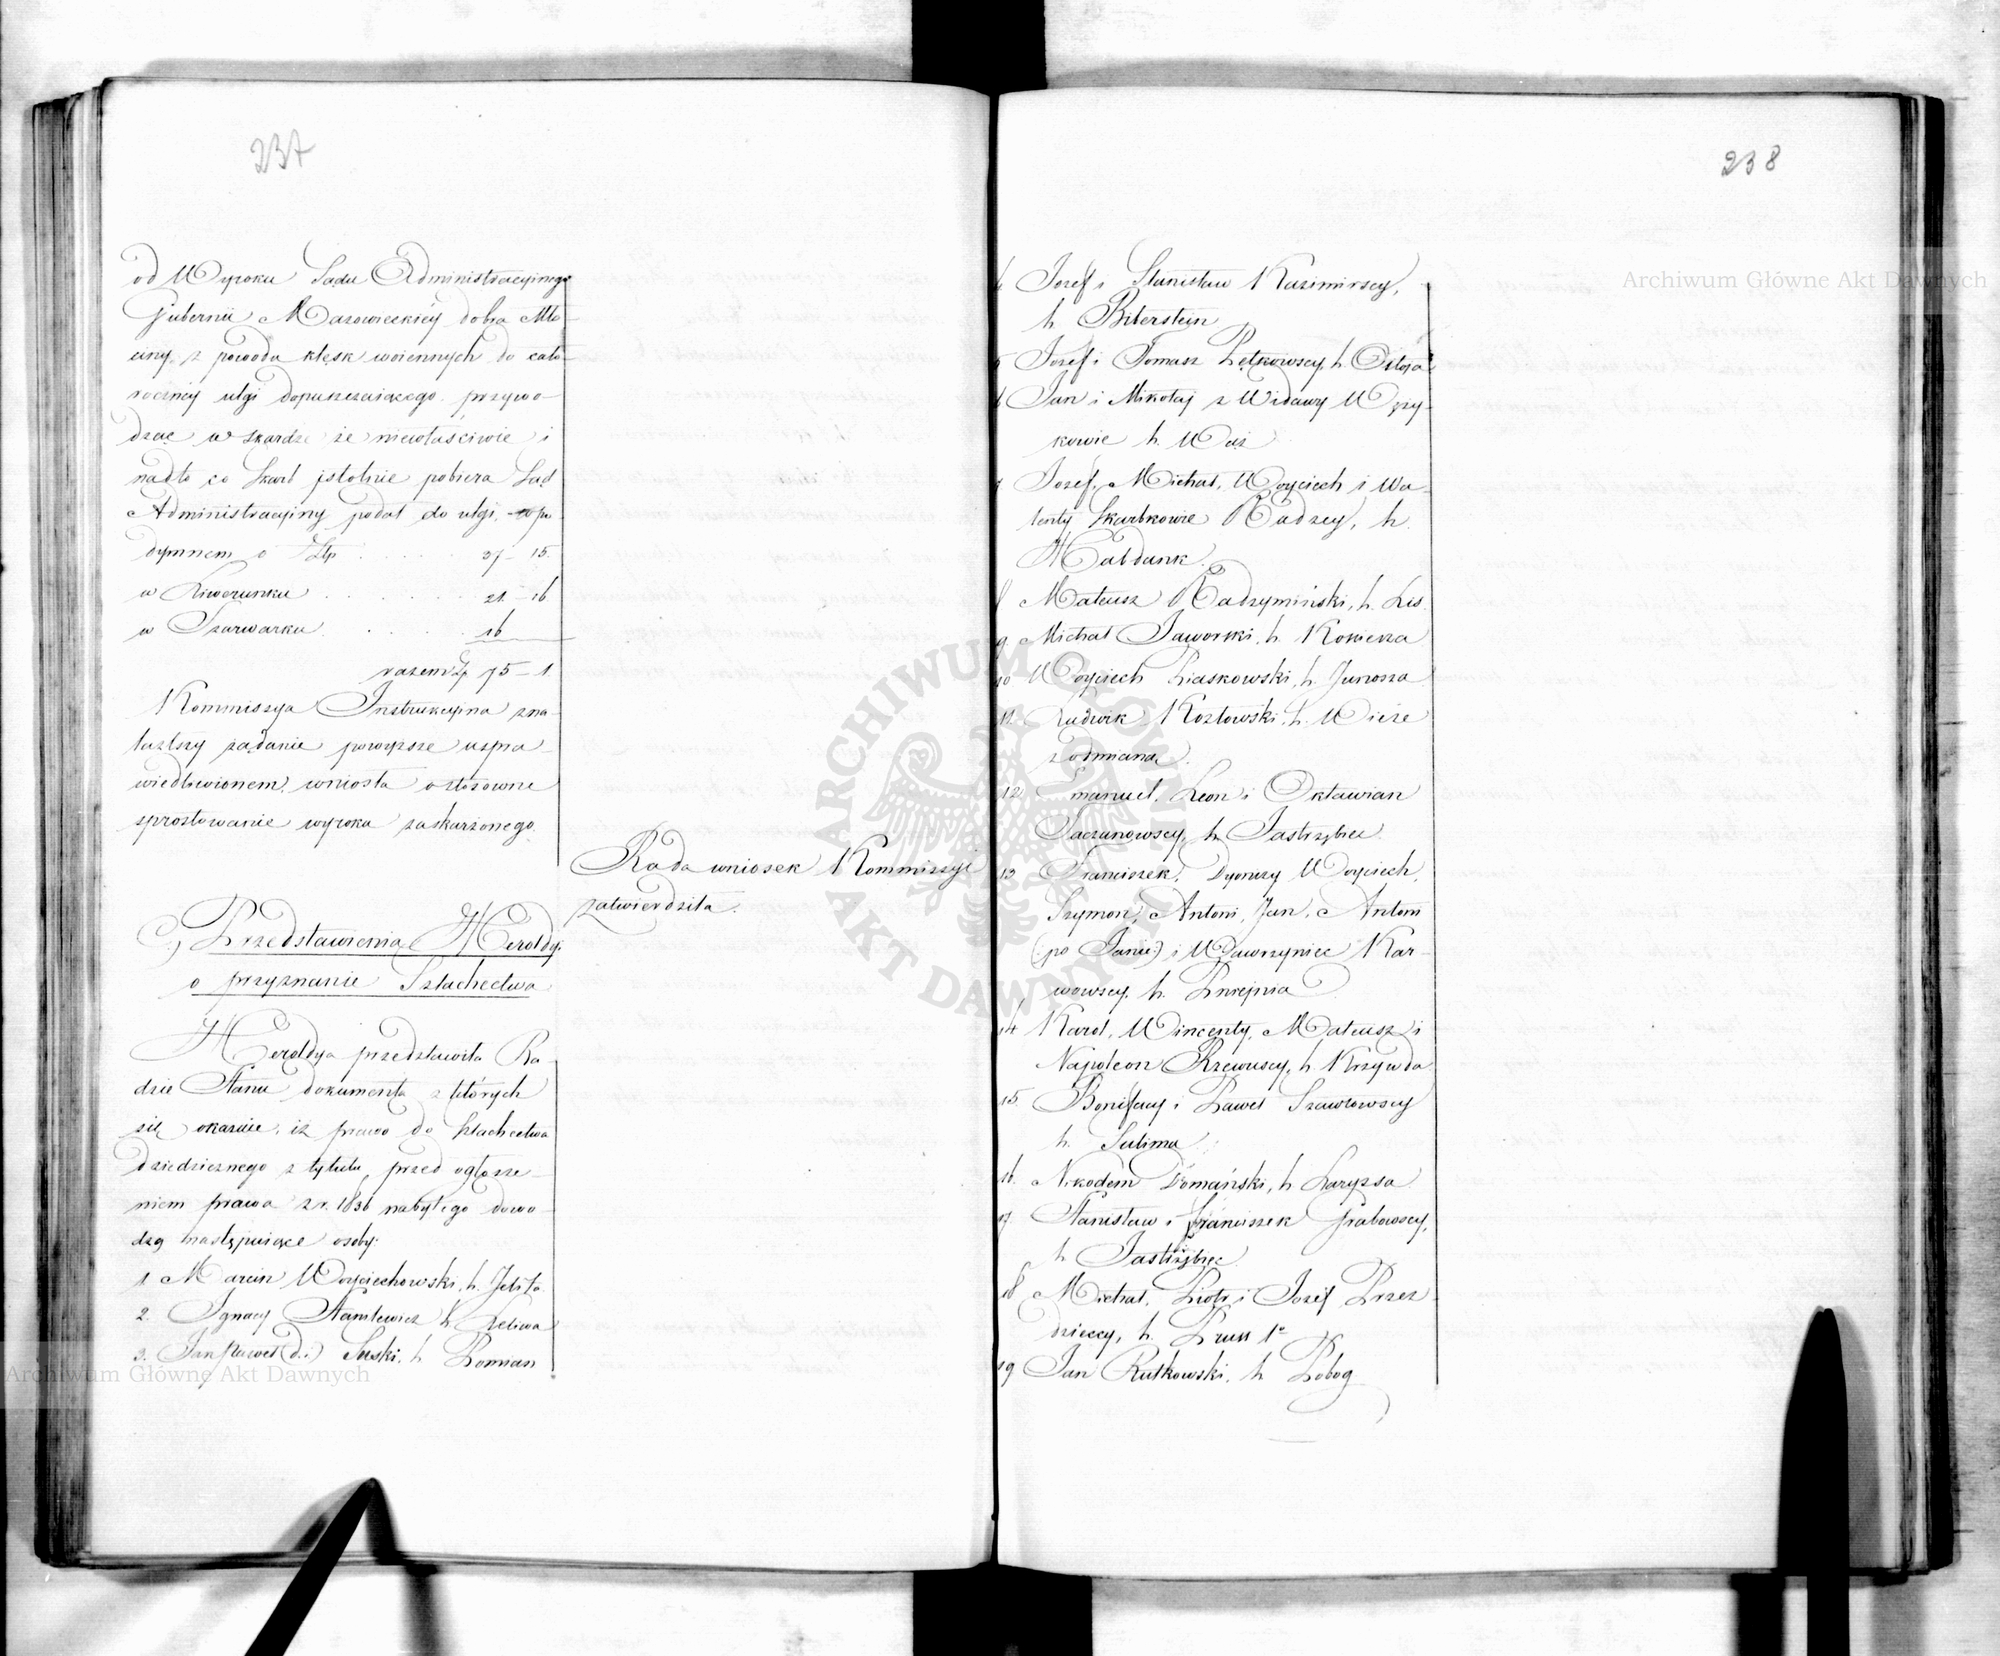 237
od Wyroku Sądu Administracyinego
Gubernii Mazowieckiéy dobra Mło-
ciny, z powodu klęsk woiennych do cało-
rocznéy ulgi dopuszczaiącego. przywo-
dząc w skardze że niewłaściwie i
nadto co Skarb istotnie pobiera Sąd
Administracyiny podał do ulgi, w po-
dymnem o Złp . . . . 37 – 15.
w Liwerunku . . . . . . 21 – 16
w Szarwarku . . . . 16
razem Zł. 75 – 1.
Kommissya Instrukcyina zna-
lazłszy żądanie powyższe uspra-
wiedliwionem, wniosła o stosowne
sprostowanie wyroku zaskarżonego.
Rada wniosek Kommissyi
zatwierdziła.
C., Przedstawienia Heroldyi
o przyznanie Szlachectwa
Heroldya przedstawiła Ra-
dzie Stanu dokumenta z których
się okazuie, iż prawo do szlachectwa
dziedzicznego z tytułu, przed ogłosze-
niem prawa z r. 1836 nabytego dowo-
dzą następuiące osoby:
1. Marcin Woyciechowski, h. Jelita
2. Ignacy Stanilewicz h. Leliwa
3. Jan Paweł (d. i.) Suski, h. Pomian
238
4 Jozef i Stanisław Kazimirscy,
h. Biberstein
5 Jozef i Tomasz Pętkowscy, h. Ostoja
6 Jan i Mikołaj z Widawy Węży-
kowie h. Wąż
7 Jozef, Michał, Woyciech i Wa-
lenty Skarbkowie Radzcy, h.
Habdank.
8 Mateusz Radzymiński, h. Lis.
9 Michał Jaworski, h. Kościesza
10 Woyciech Piaskowski, h. Junosza
11. Ludwik Kozłowski, h. Wieże
z odmianą.
12. Emanuel, Leon i Oktawian
Taczanowscy, h. Jastrzębiec.
13 Franciszek, Dyonizy Woyciech,
Szymon, Antoni, Jan, Antoni
(: po Janie:) i Wawrzyniec Kar-
wowscy, h. Pniejnia
14 Karol, Wincenty, Mateusz i
Napoleon Rzewuscy, h. Krzywda
15. Bonifacy i Paweł Szawłowscy
h. Sulima
16. Nikodem Domański, h. Larysza
17 Stanisław i Franciszek Grabowscy,
h. Jastrzębiec
18 Michał, Piotr i Jozéf Przez-
dzieccy, h. Pruss 1º
19 Jan Rutkowski, h. Pobog
ARCHIWUM GŁÓWNE AKT DAWNYCH
Archiwum Główne Akt Dawnych
Archiwum Główne Akt Dawnych